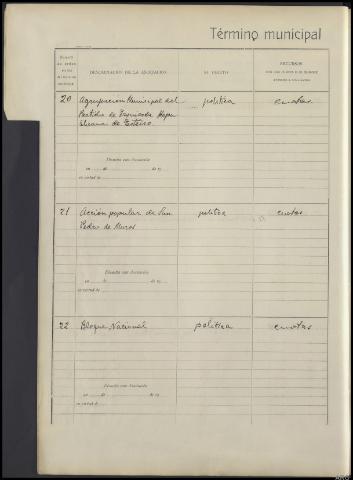 Término municipal
DENOMINACIÓN DE LA ASOCIACIÓN
SU OBJETO
RECURSOS
20 Agrupacion Municipal del política cuotas
Partido de Izquierda Repu
blicana de Esteiro
Disuelta esta Asociación
en de de 19
en virtud de
21 Acción popular de San política cuotas
Pedro de Muros
Disuelta esta Asociación
en de de 19
en virtud de
22 Bloque Nacional política cuotas
Disuelta esta Asociación
en de de 19
en virtud de